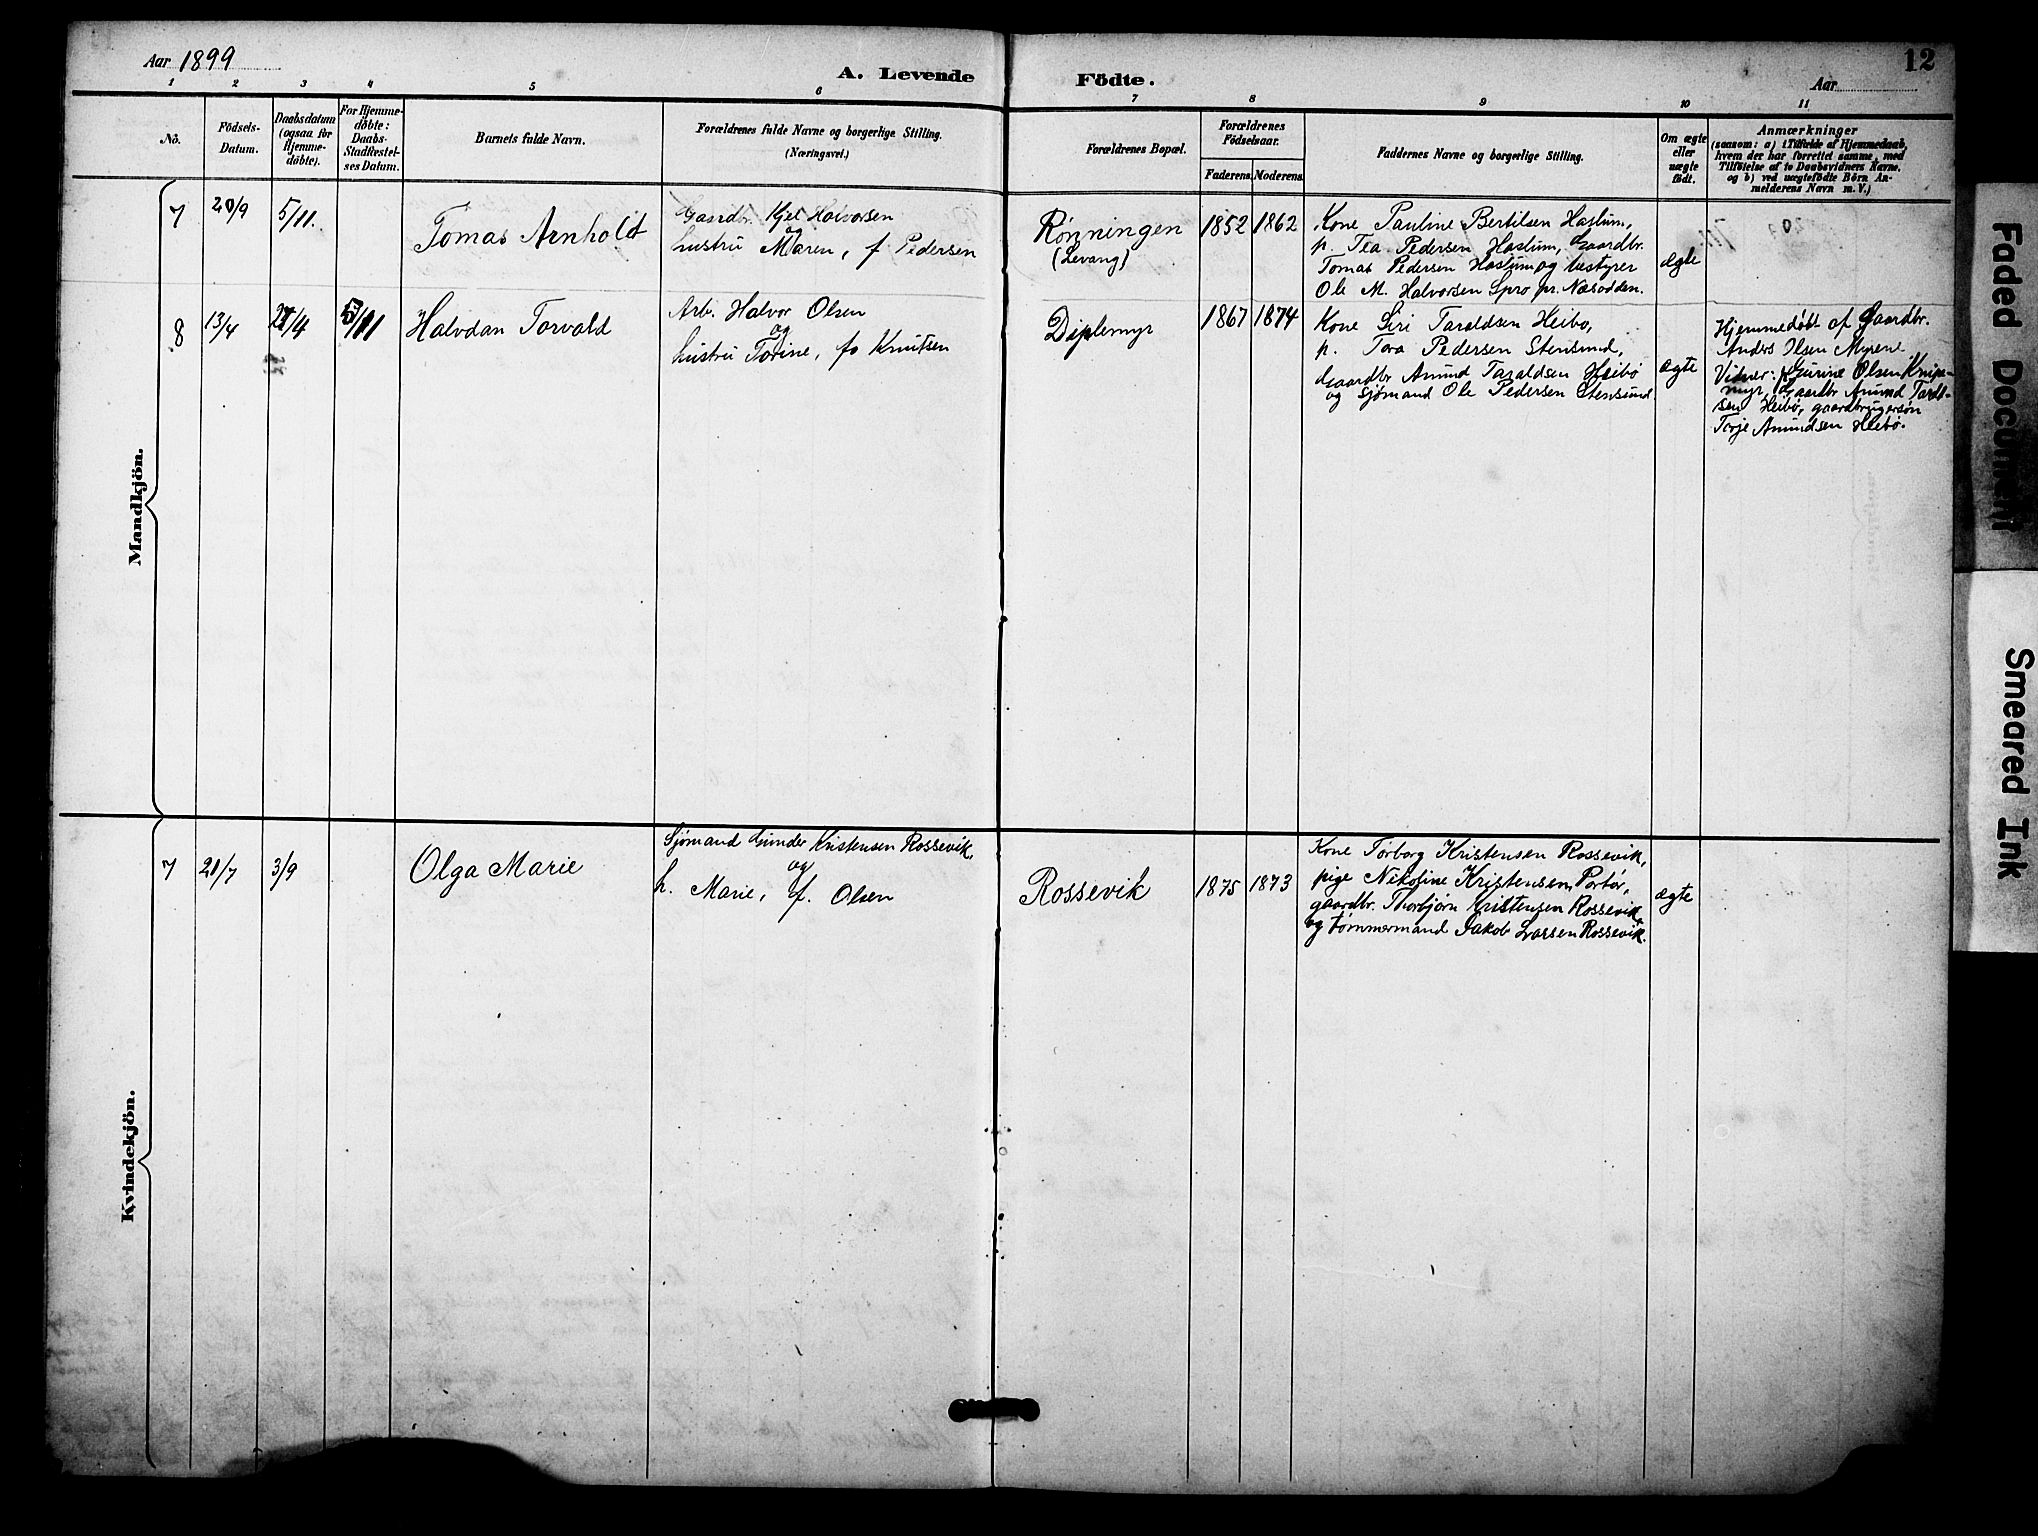 Aar 1899
A. Levende Födte.
Aar
12
1 2 3 4 5 6 7 8 9 10 11
No.
Födsels-
Datum.
Daabsdatum
(ogsaa for
Hjemme-
döbte).
For Hjemme-
döbte:
Daabs-
Stadfæstel-
ses Datum.
Barnets fulde Navn.
Forældrenes fulde Navne og borgerlige Stilling.
(Næringsvei.)
Forældrenes Bopæl.
Forældrenes
Födselsaar.
Faderens. Moderens.
Faddernes Navne og borgerlige Stilling.
Om ægte
eller
uægte
födt.
Anmærkninger
(saasom: a) i Tilfælde af Hjemmedaab,
hvem der har forrettet samme, med
Tilföielse af to Daabsvidners Navne,
og b) ved uægtefödte Börn An-
melderens Navn m. V.)
Mandkjön.
7
20/9
5/11.
Tomas Arnholdt
Gaardbr. Kjel Halvorsen
og
hustru Maren, f Pedersen
Rønningen
(Levang)
1852
1862
Kone Pauline Bertilsen Haslum,
p. Tea Pedersen Haslum, Gaardbr.
Tomas Pedersen Haslum og bestyrer
Ole M. Halvorsen Spro pr. Næsodden.
ægte
8
13/4
/4
5/11
Halvdan Torvald
Arb. Halvor Olsen
og
hustru Torine, fo Knutsen
Diplemyr
1867
1874
Kone Siri Taraldsen Heibo,
p. Tora Pedersen Stensund,
Gaardbr Anund Taraldsen Heibö
og Sjömand Ole Pedersen Stensund.
ægte
Hjemmedöbt af Gaardbr.
Anders Olsen Myrene.
Vidner: Gurine Olsen Knipe-
myr, Gaardbr Anund Tarald-
sen Heibö, gaardbrugersön
Torje Anundsen Heibö.
Kvindekjön.
7
21/7
3/9
Olga Marie
Sjømand Gunder Kristensen Rossevik,
og
h. Marie, f. Olsen
Rossevik
1875
1873
Kone Torborg Kristensen Rossevik,
pige Nikoline Kristensen, Portør,
gaardbr. Thorbjørn Kristensen Rossevik,
og tømmermand Jakob Larsen Rossevik.
ægte
Faded Document
Smeared Ink